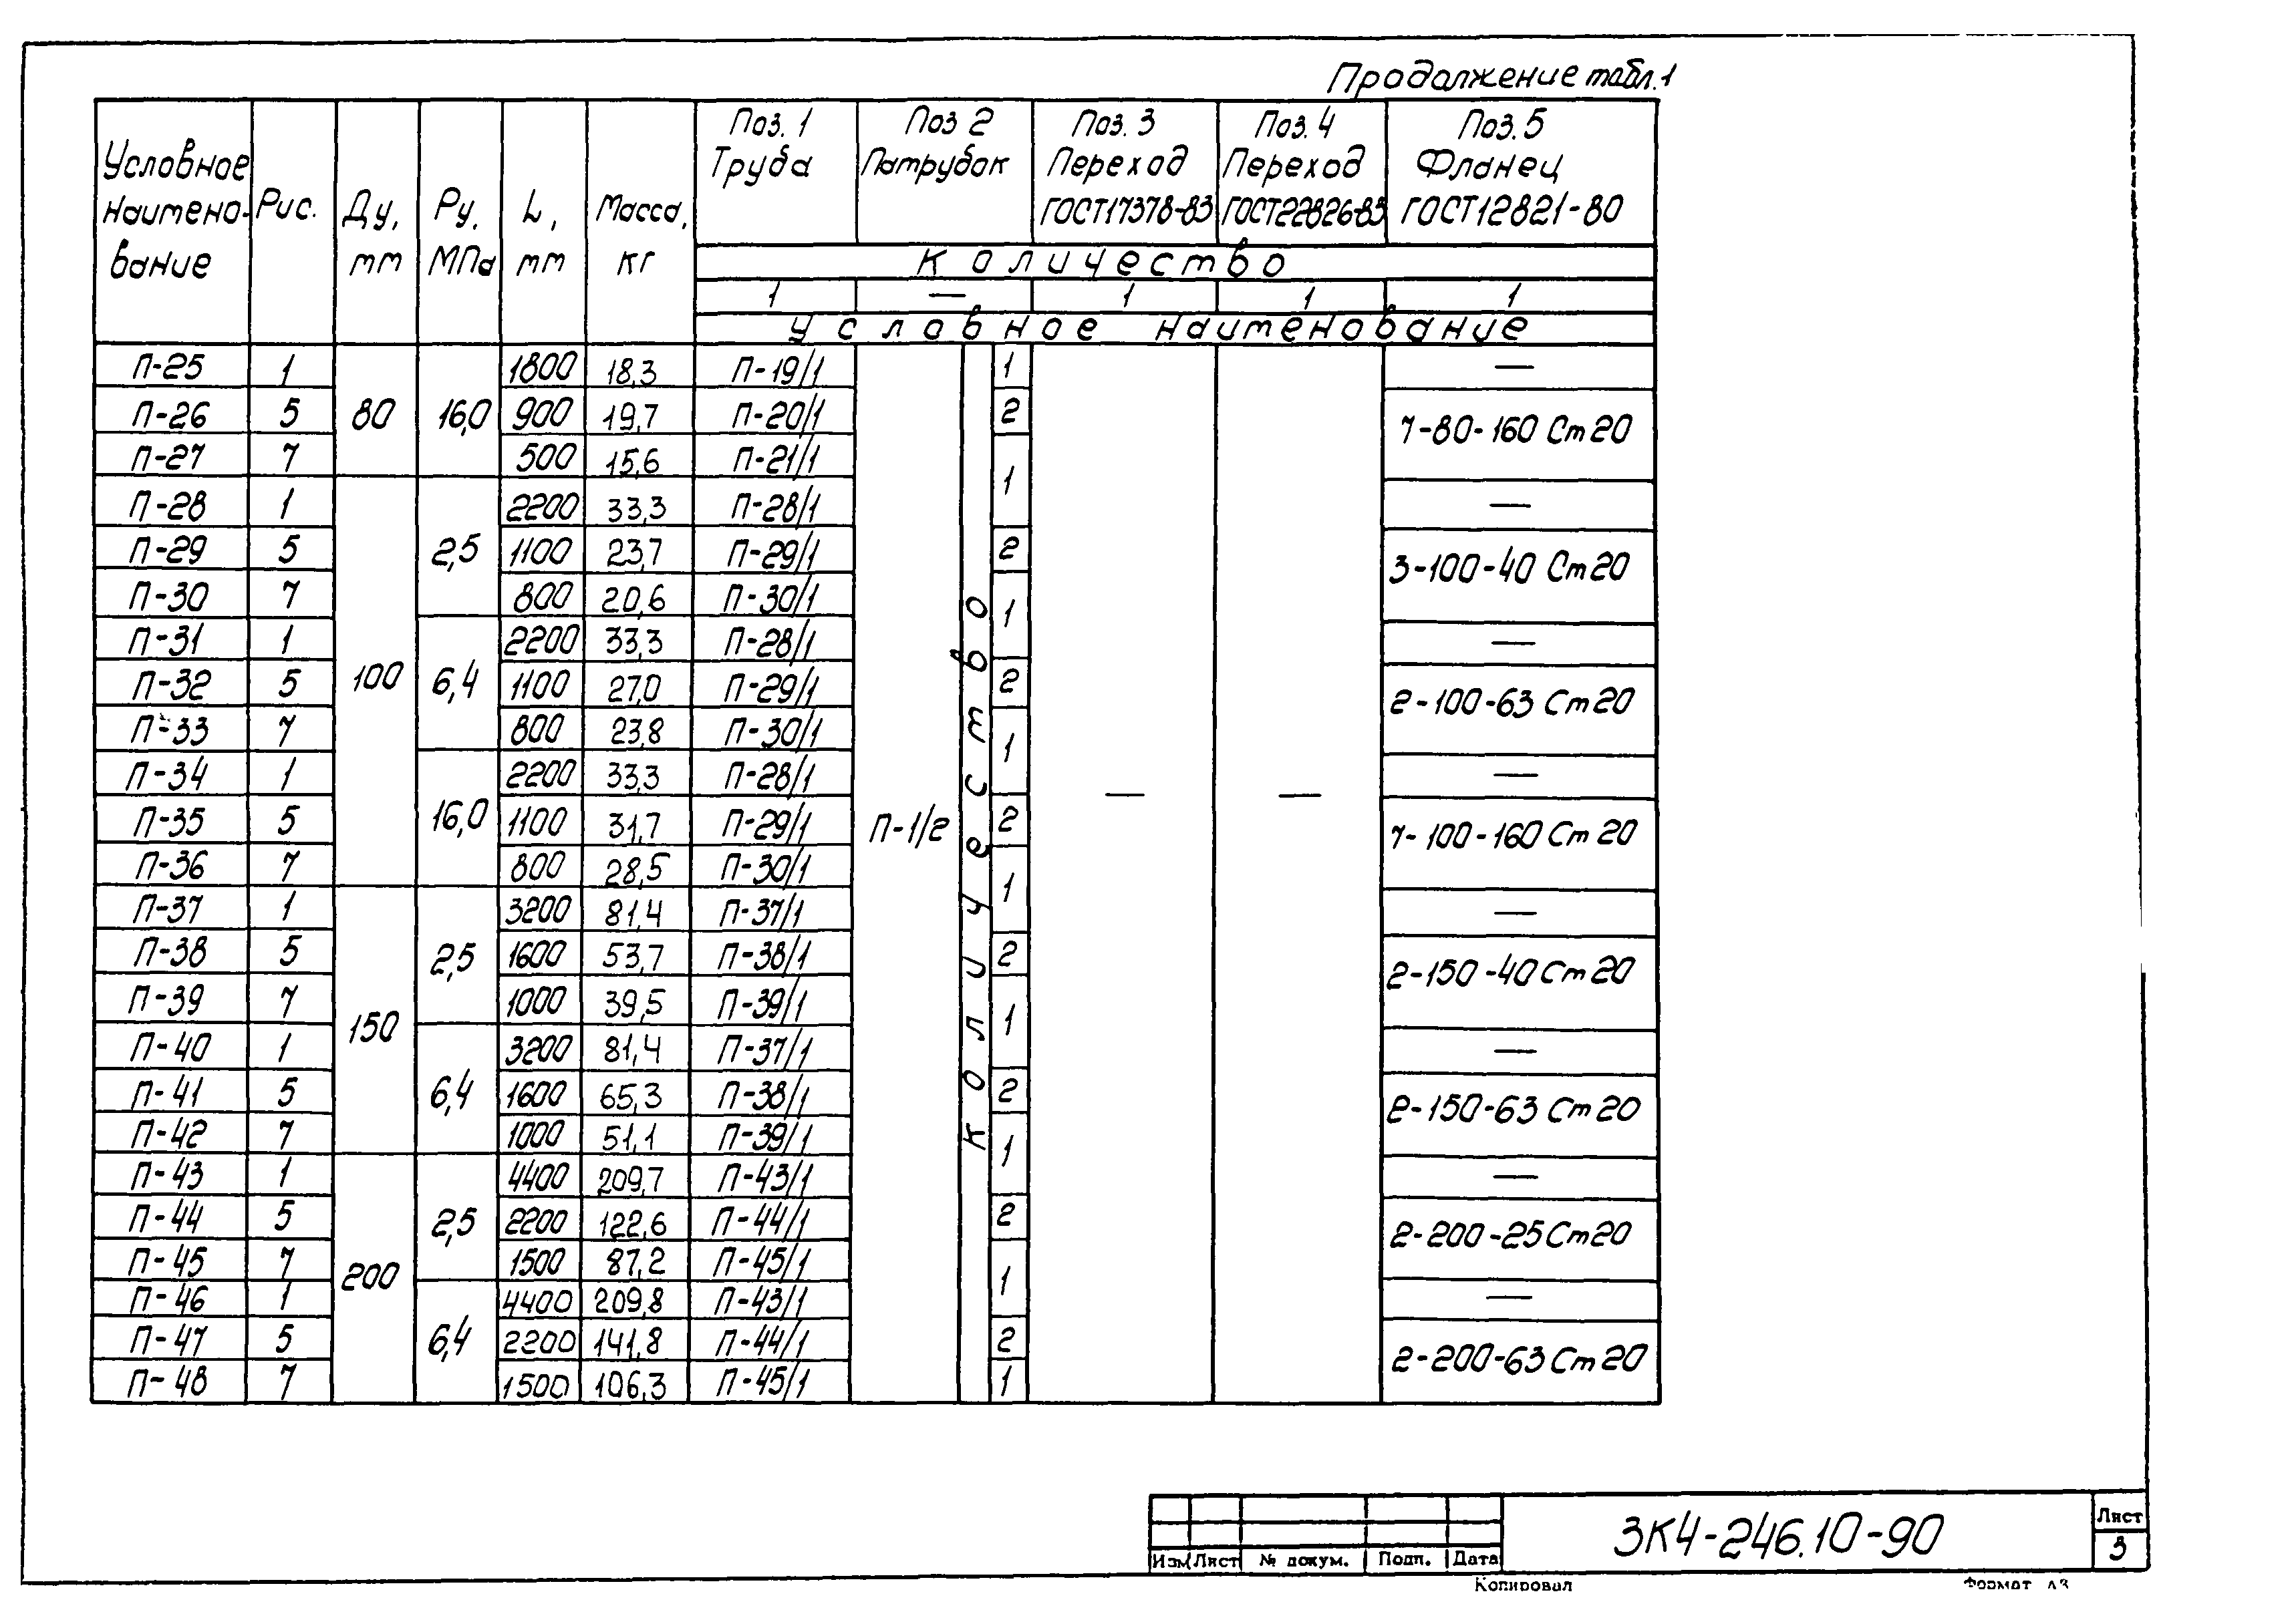 Продолжение табл.1
Условное Наимено-вание | Рис. | Ду, мм | Ру, МПа | L, мм | Масса, кг | Поз. 1 Труба | Поз 2 Патрубок | Поз. 3 Переход ГОСТ17378-83 | Поз. 4 Переход ГОСТ22826-83 | Поз. 5 Фланец ГОСТ12821-80
Количество
1 | — | 1 | 1 | 1
Условное наименование
П-25 | 1 | 80 | 16,0 | 1800 | 18,3 | П-19/1 | П-1/2 | Количество | 1 | — | — | —
П-26 | 5 | 900 | 19,7 | П-20/1 | 2 | 7-80-160 Ст20
П-27 | 7 | 500 | 15,6 | П-21/1 | 1
П-28 | 1 | 100 | 2,5 | 2200 | 33,3 | П-28/1 | —
П-29 | 5 | 1100 | 23,7 | П-29/1 | 2 | 3-100-40 Ст20
П-30 | 7 | 800 | 20,6 | П-30/1 | 1
П-31 | 1 | 6,4 | 2200 | 33,3 | П-28/1 | —
П-32 | 5 | 1100 | 27,0 | П-29/1 | 2 | 2-100-63 Ст20
П-33 | 7 | 800 | 23,8 | П-30/1 | 1
П-34 | 1 | 16,0 | 2200 | 33,3 | П-28/1 | —
П-35 | 5 | 1100 | 31,7 | П-29/1 | 2 | 7-100-160 Ст20
П-36 | 7 | 800 | 28,5 | П-30/1 | 1
П-37 | 1 | 150 | 2,5 | 3200 | 81,4 | П-37/1 | —
П-38 | 5 | 1600 | 53,7 | П-38/1 | 2 | 2-150-40 Ст20
П-39 | 7 | 1000 | 39,5 | П-39/1 | 1
П-40 | 1 | 6,4 | 3200 | 81,4 | П-37/1 | —
П-41 | 5 | 1600 | 65,3 | П-38/1 | 2 | 2-150-63 Ст20
П-42 | 7 | 1000 | 51,1 | П-39/1 | 1
П-43 | 1 | 200 | 2,5 | 4400 | 209,7 | П-43/1 | —
П-44 | 5 | 2200 | 122,6 | П-44/1 | 2 | 2-200-25 Ст20
П-45 | 7 | 1500 | 87,2 | П-45/1 | 1
П-46 | 1 | 6,4 | 4400 | 209,8 | П-43/1 | —
П-47 | 5 | 2200 | 141,8 | П-44/1 | 2 | 2-200-63 Ст20
П-48 | 7 | 1500 | 106,3 | П-45/1 | 1
Изм Лист № докум. Подп. Дата
ЗК4-246.10-90
Лист
3
Копировал
Формат А3